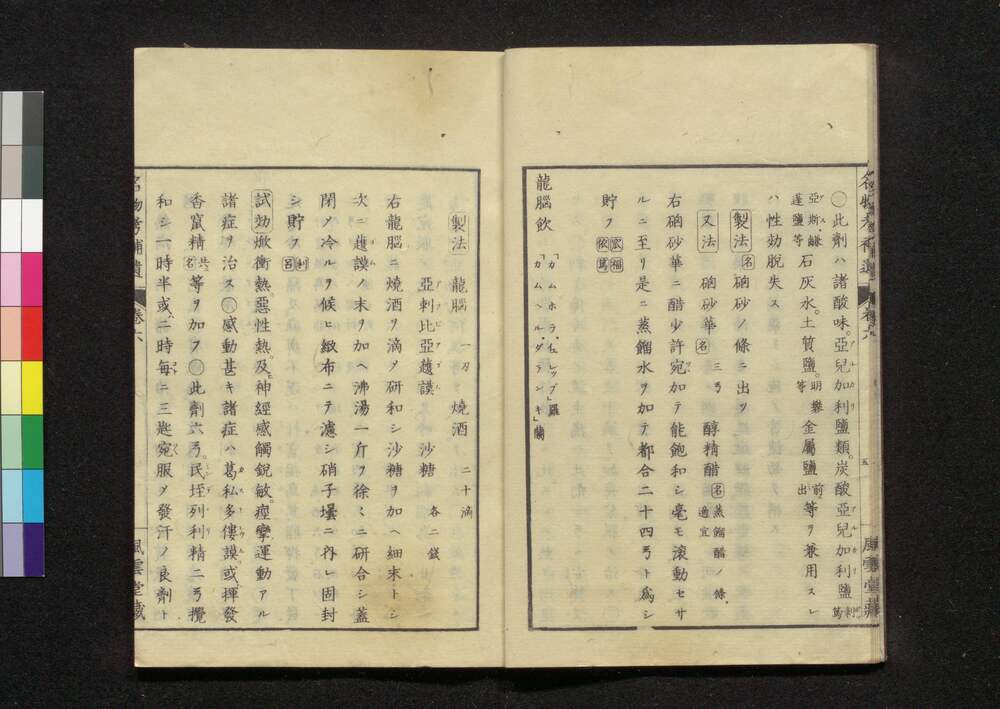 ◯此劑ハ諸酸味。亞兒加利鹽類。炭酸亞兒加利鹽 刺篤
亞斯、謙蓬鹽等 石灰水。土質鹽。明礬等 金属鹽 前出 等ヲ兼用スレ
ハ性効脱失ス
製法 名 硇砂ノ條ニ出ツ
又法 硇砂華 名 三弓 醇精醋 名 蒸餾醋ノ條 適宜
右硇砂華ニ醋少許宛加テ能飽和シ毫モ滾動セサ
ルニ至リ是ニ蒸餾水ヲ加テ都合二十四弓ト爲シ
貯フ 扶福 依篤
龍腦飲 「カムホラ、イュレップ」羅 「カムヘル、ダランキ」蘭
名物考補遺 卷六 五 風雲堂藏
製法 龍腦 一刃 燒酒 二十滴
亞剌比亞護謨 沙糖 各二錢
右龍腦ニ燒酒ヲ滴〆研和シ沙糖ヲ加ヘ細末トシ
次ニ護謨ノ末ヲ加ヘ沸湯一斤ヲ徐々ニ研合シ蓋
閉〆冷ルヲ候ヒ緻布ニテ濾シ硝子壜ニ内レ固封
シ貯フ 利 呂
試効 焮衝熱惡性熱。及神經感觸銳敏。痙攣運動アル
諸症ヲ治ス◯感動甚キ諸症ハ葛私多僂謨。或揮發
香竄精 共名 等ヲ加フ◯此劑六弓。民垤列利精二弓攪
和シ一時半或二時每ニ三匙宛服〆發汗ノ良劑ト
名物考補遺 卷六 風雲堂藏